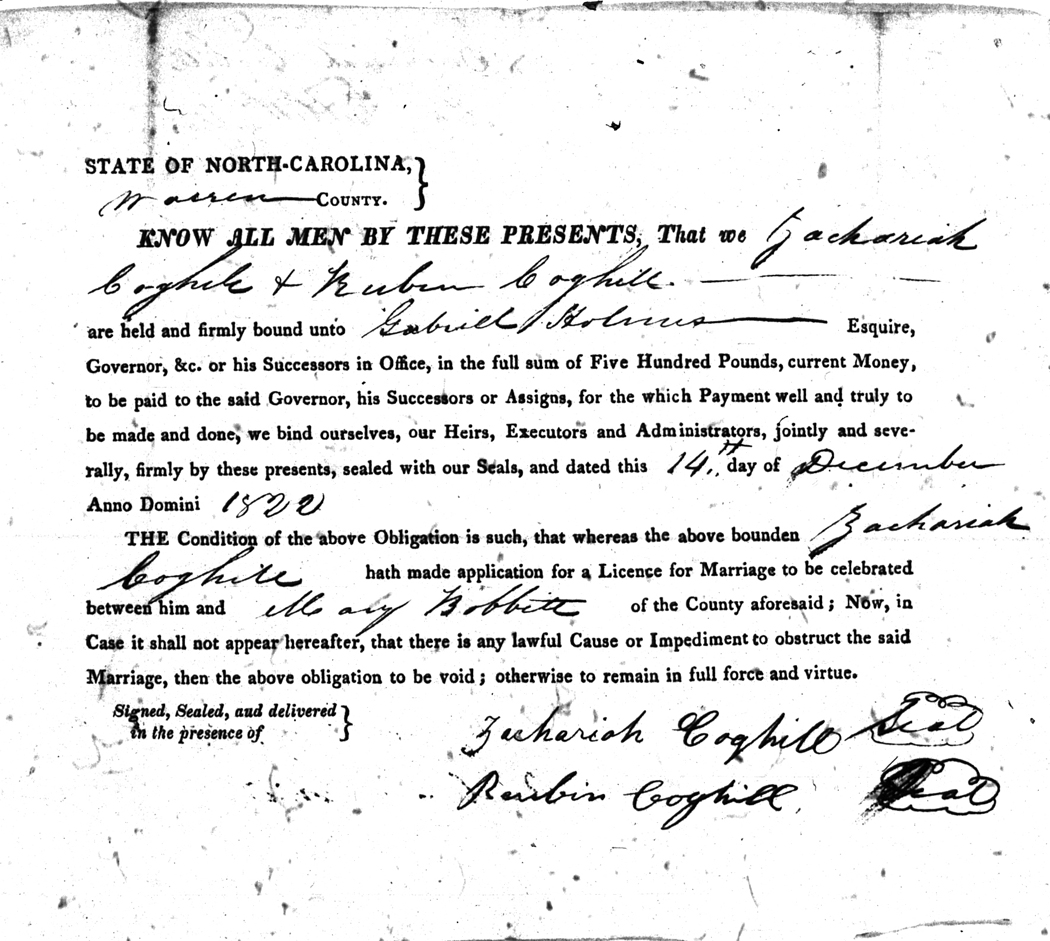 STATE OF NORTH-CAROLINA,
Warren COUNTY.
KNOW ALL MEN BY THESE PRESENTS, That we Zachariah
Coghill & Reuben Coghill.
are held and firmly bound unto Gabriell Holmes Esquire,
Governor, &c. or his Successors in Office, in the full sum of Five Hundred Pounds, current Money,
to be paid to the said Governor, his Successors or Assigns, for the which Payment well and truly to
be made and done, we bind ourselves, our Heirs, Executors and Administrators, jointly and seve-
rally, firmly by these presents, sealed with our Seals, and dated this 14th day of December
Anno Domini 1822
THE Condition of the above Obligation is such, that whereas the above bounden Zachariah
Coghill hath made application for a Licence for Marriage to be celebrated
between him and Mary Bobbitt of the County aforesaid; Now, in
Case it shall not appear hereafter, that there is any lawful Cause or Impediment to obstruct the said
Marriage, then the above obligation to be void; otherwise to remain in full force and virtue.
Signed, Sealed, and delivered
in the presence of
Zachariah Coghill Seal
Reubin Coghill Seal